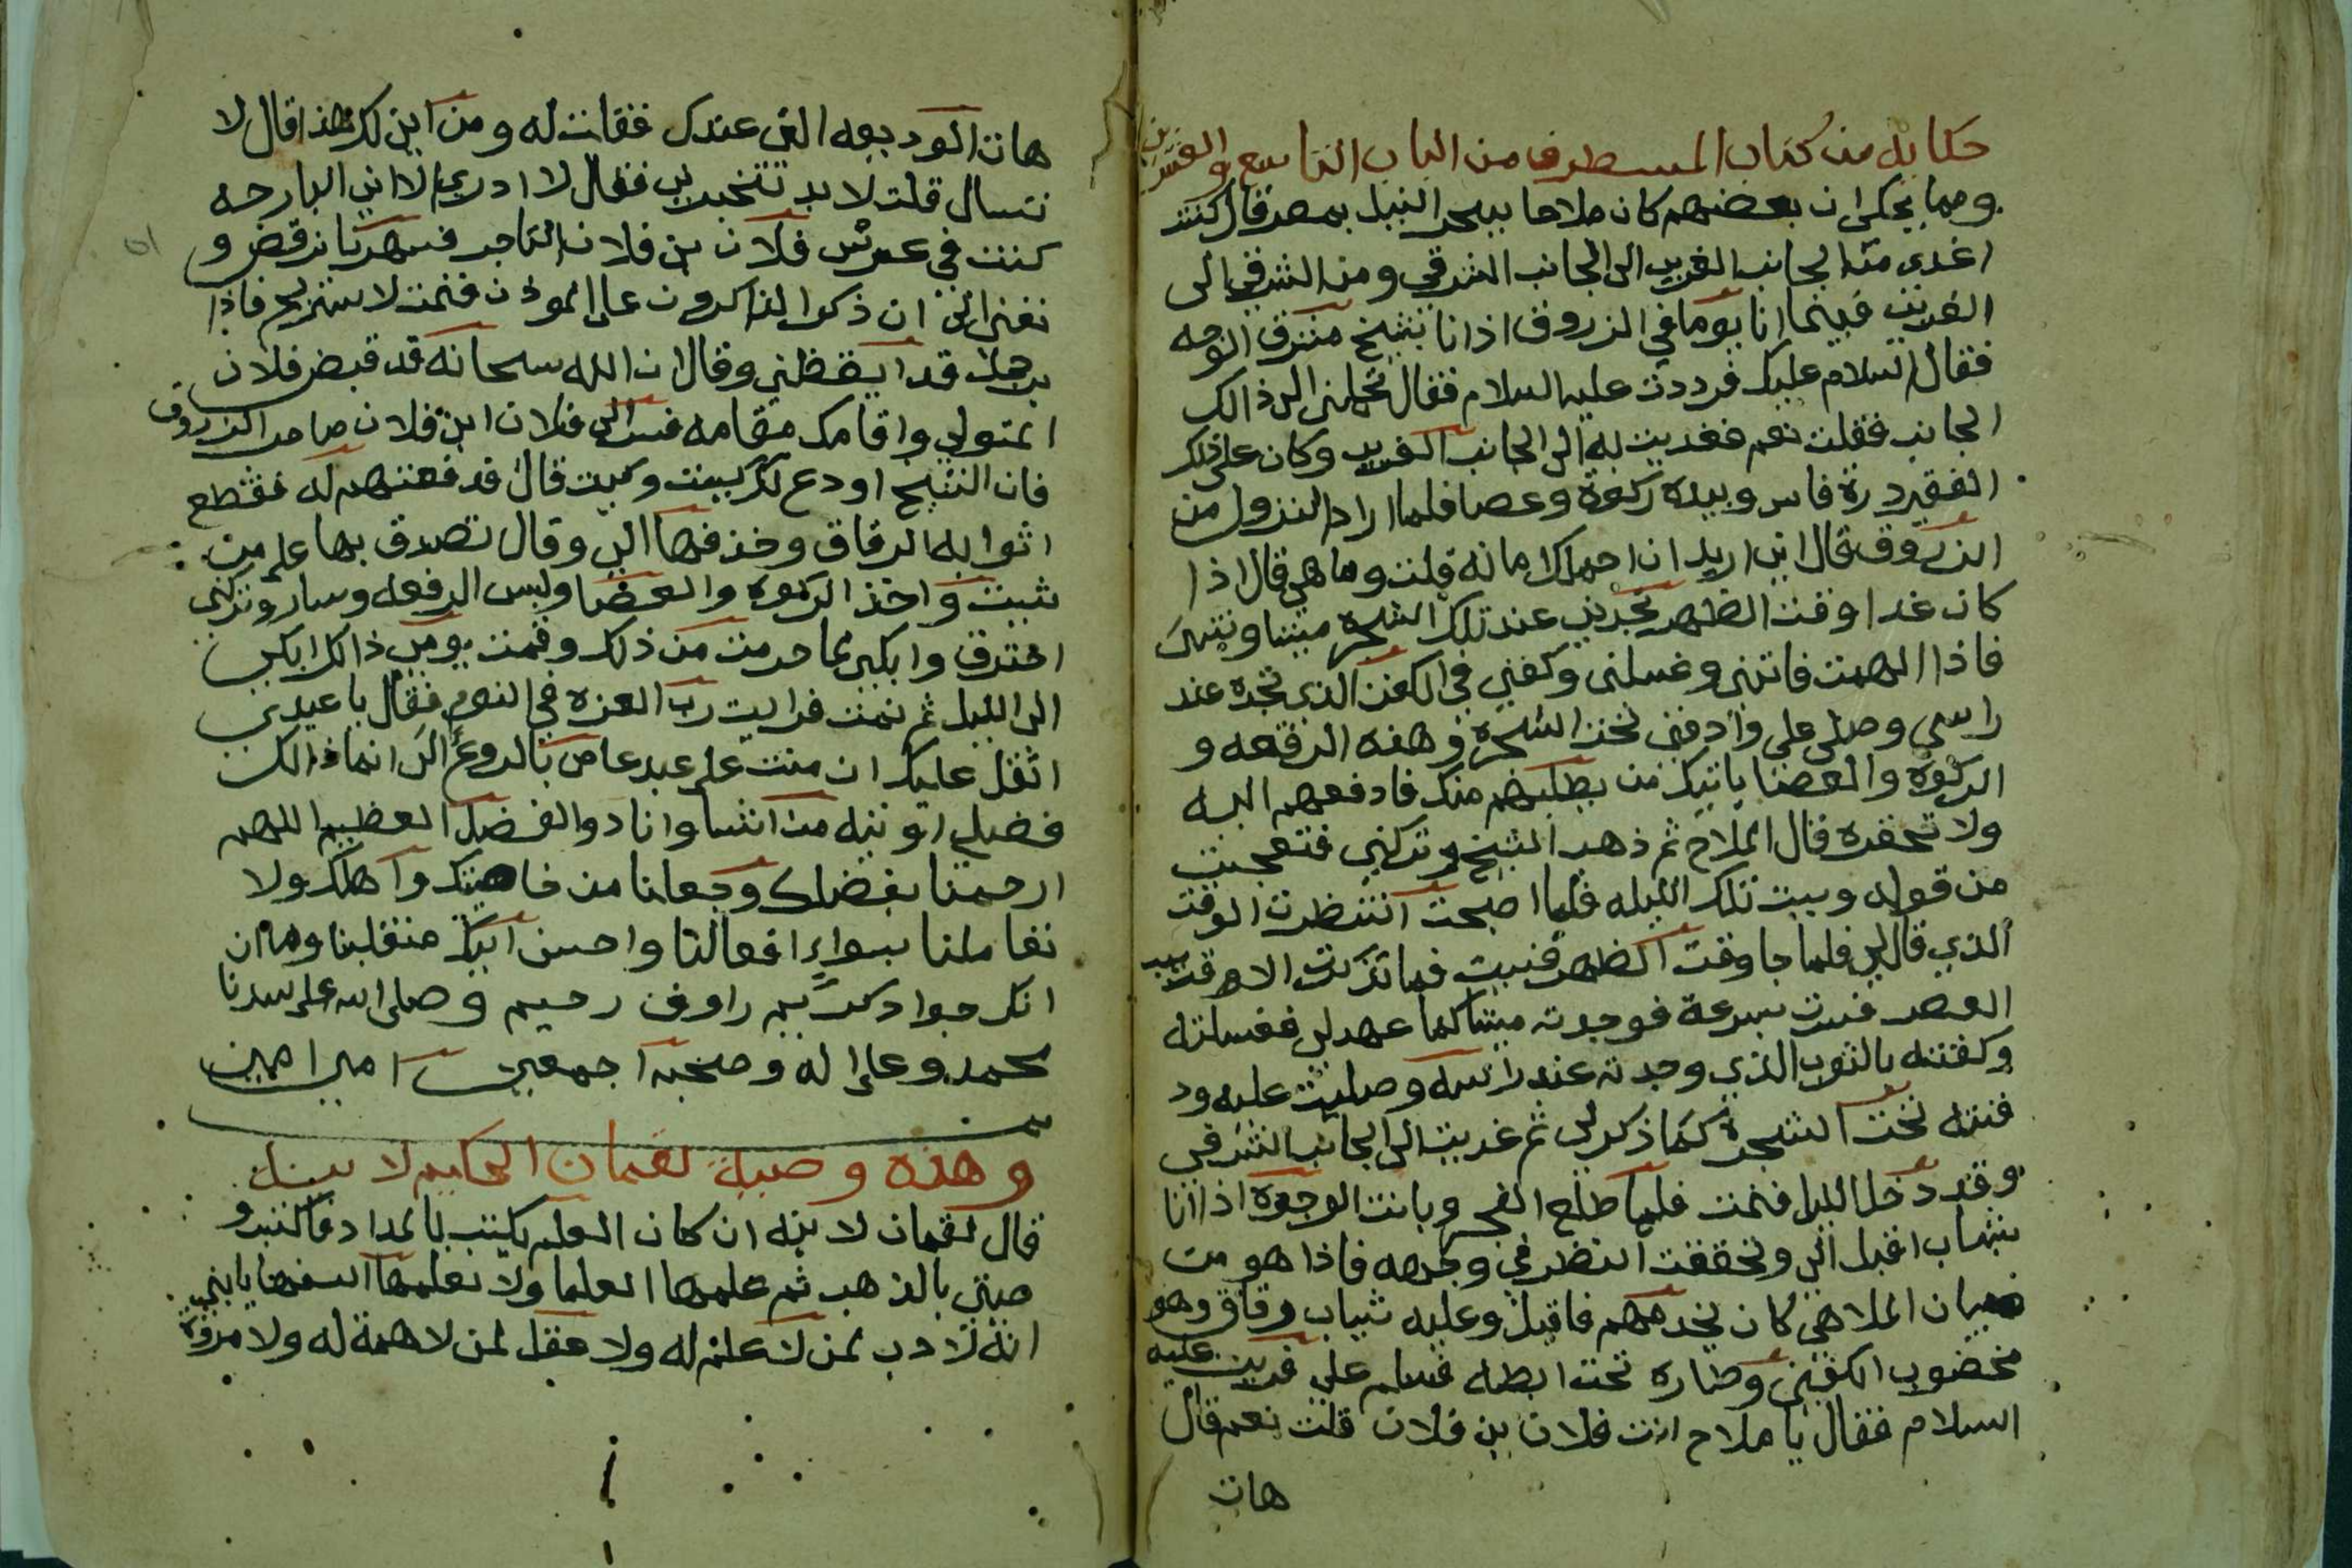 حكاية من كتاب المستطرف من الباب التاسع والعشرين
ومما يحكى ان بعضهم كان ملاحا ببحر النيل بمصر قال كنت
اعدي من الجانب الغربي الى الجانب الشرقي ومن الشرقي الى
الغربي فبينما انا يوما في الزروق اذ انا بشيخ مشرق الوجه
فقال السلام عليك فرددت عليه السلام فقال تحملني الى ذالك
الجانب فقلت نعم فعديت به الى الجانب الغربي وكان على ذلك
الفقير درة فاس وبيده ركوة وعصا فلما اراد النزول من
الزروق قال اني اريد ان احملك امانه قلت وما هي قال اذا
كان غدا وقت الظهر تجدني عند تلك الشجره ميتا وتنسى
فاذا الهمت فاتني وغسلني وكفني في الكفن الذي تجده عند
راسي وصلي علي وادفني تحت الشجرة وهذه الرقعه و
الركوة والعصا ياتيك من يطلبهم منك فادفعهم اليه
ولا تحقره قال الملاح ثم ذهب الشيخ وتركني فتعجبت
من قوله وبيت تلك الليله فلما اصبحت انتظرت الوقت
الذي قال لي فلما جا وقت الظهر فنيست فما تذكرت الا قريب
العصر فسرت بسرعة فوجدته ميتا كما عهد لي فغسلته
وكفنته بالثوب الذي وجدته عند راسه وصليت عليه ود
فنته تحت الشجرة كما ذكر لي ثم عديت الى الجانب الشرقي
وقد دخل الليل فنمت فلما طلع الفجر وبانت الوجوه اذا انا
بشاب اقبل الي وتحققت النظر في وجهه فاذا هو من
صبيان الملاهي كان يخدمهم فاقبل وعليه ثياب رقاق وهو
مخضوب الكفين وطاره تحت ابطه فسلم علي فرديت عليه
السلام فقال يا ملاح انت فلان بن فلان قلت نعم قال
هات
هات الوديعه التي عندك فقلت له ومن اين لك هذا قال لا
تسال قلت لا بد تخبرني فقال لا ادري الا اني البارحه
كنت في عرس فلان بن فلان التاجر فسهرنا نرقص و
نغني الى ان ذكروا الذاكرون على الموذن فنمت لاستريح فاذا
برجل قد ايقظني وقال ان الله سبحانه قد قبض فلان
المتولي واقامك مقامه فسر الى فلان ابن فلان صاحب الزروق
فان الشيخ اودع لك كيت وكيت قال فدفعتهم له فقطع
اثوابه الرقاق وحذفها الي وقال تصدق بها على من
شيت واخذ الركوه والعصا ولبس الرقعه وسار وتركني
احترق وابكي لما حرمت من ذلك وقمت يومي ذالك ابكي
الى الليل ثم نمت فرايت رب العزه في النوم فقال يا عبدي
اثقل عليك ان مننت على عبد عاص بالرجوع الي انما ذالك
فضلي اوتيه من اشا وانا ذو الفضل العظيم اللهم
ارحمنا بفضلك وجعلنا من خاصيتك واهلك ولا
تعاملنا بسواء افعالنا واحسن اليك منقلبنا وماان
انك جواد كريم راوف رحيم وصلى الله على سيدنا
محمد وعلى اله وصحبه اجمعين امين امين
وهذه وصية لقمان الحكيم لابنه
قال لقمان لابنه ان كان العلم يكتب بالمداد فاكتب و
صيتي بالذهب ثم علمها العلما ولا تعلمها السفها يا بني
انه لا ادب لمن لا علم له ولا عقل لمن لا همة له ولا مروة